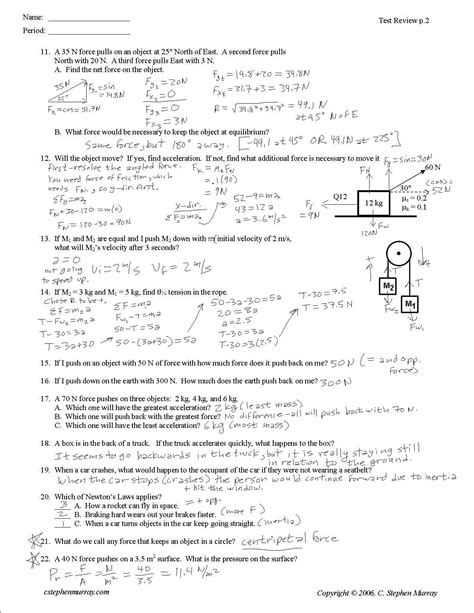 Name:
Test Review p.2
Period:
11. A 35 N force pulls on an object at 25° North of East. A second force pulls
North with 20 N. A third force pulls East with 3 N.
A. Find the net force on the object.
35N
25°
Fy1 = sin = 14.8N
Fx1 = cos = 31.7N
Fy2 = 20N
Fx2 = 0
Fy3 = 0
Fx3 = 3N
Fyt = 14.8 + 20 = 34.8N
Fxt = 31.7 + 3 = 34.7N
= 49.1 N
at 45° N of E
B. What force would be necessary to keep the object at equilibrium?
Same force, but 180° away. [-49.1 at 45° OR 49.1N at 225°]
12. Will the object move? If yes, find acceleration. If not, find what additional force is necessary to move it
First-resolve the angled force.
You need force of friction, which
needs FN, so y-dir. first.
ΣFy = may
FN + 30 - 120 = m(0)
FN = 120 - 30 = 90N
Fk = μkFN
= .1(90)
= 9N
x-dir.
ΣFx = max
52 - 9 = ma
43 = 12a
a = 3.6 m/s²
Fy = sin = 30N
60 N
(cos) =
52N
30°
FN
Q12
12 kg
μs = 0.2
μk = 0.1
Ff
= 9N
Fw
120N
13. If M1 and M2 are equal and I push M2 down with initial velocity of 2 m/s,
what will M2's velocity after 3 seconds?
a = 0
not going
to speed up.
vi = 2 m/s vf = 2 m/s
M2
M1
T
T
Fw2
Fw1
14. If M2 = 3 kg and M1 = 5 kg, find the tension in the rope.
Chose R to be +.
ΣF = m2a
T - Fw2 = m2a
T - 30 = 3a
T = 3a + 30
ΣF = ma
Fw1 - T = ma
50 - T = 5a
50 - (3a + 30) = 5a
50 - 3a - 30 = 5a
20 = 8a
a = 2.5
T - 30 = 3a
T - 30 = 3(2.5)
T - 30 = 7.5
T = 37.5 N
15. If I push on an object with 50 N of force with how much force does it push back on me? 50N (= and opp. force)
16. If I push down on the earth with 300 N. How much does the earth push back on me? 300N
17. A 70 N force pushes on three objects: 2 kg, 4 kg, and 6 kg.
A. Which one will have the greatest acceleration? 2 kg (least mass)
B. Which one will push back with the greatest force? No difference - all will push back with 70 N.
C. Which one will have the least acceleration? 6 kg (most mass)
18. A box is in the back of a truck. If the truck accelerates quickly, what happens to the box?
It seems to go backwards in the truck, but it is really staying still
in relation to the ground.
19. When a car crashes, what would happen to the occupant of the car if they were not wearing a seatbelt?
When the car stops (crashes) the person would continue forward due to inertia
+ hit the window.
20. Which of Newton's Laws applies?
3 A. How a rocket can fly in space. = + opp.
2 B. Braking hard wears out your brakes faster. (more F)
1 C. When a car turns objects in the car keep going straight. (inertia)
21. What do we call any force that keeps an object in a circle? centripetal force
22. A 40 N force pushes on a 3.5 m² surface. What is the pressure on the surface?
Pr = F/A = N/m² = 40/3.5 = 11.4 N/m²
cstephenmurray.com
Copyright © 2006, C. Stephen Murray